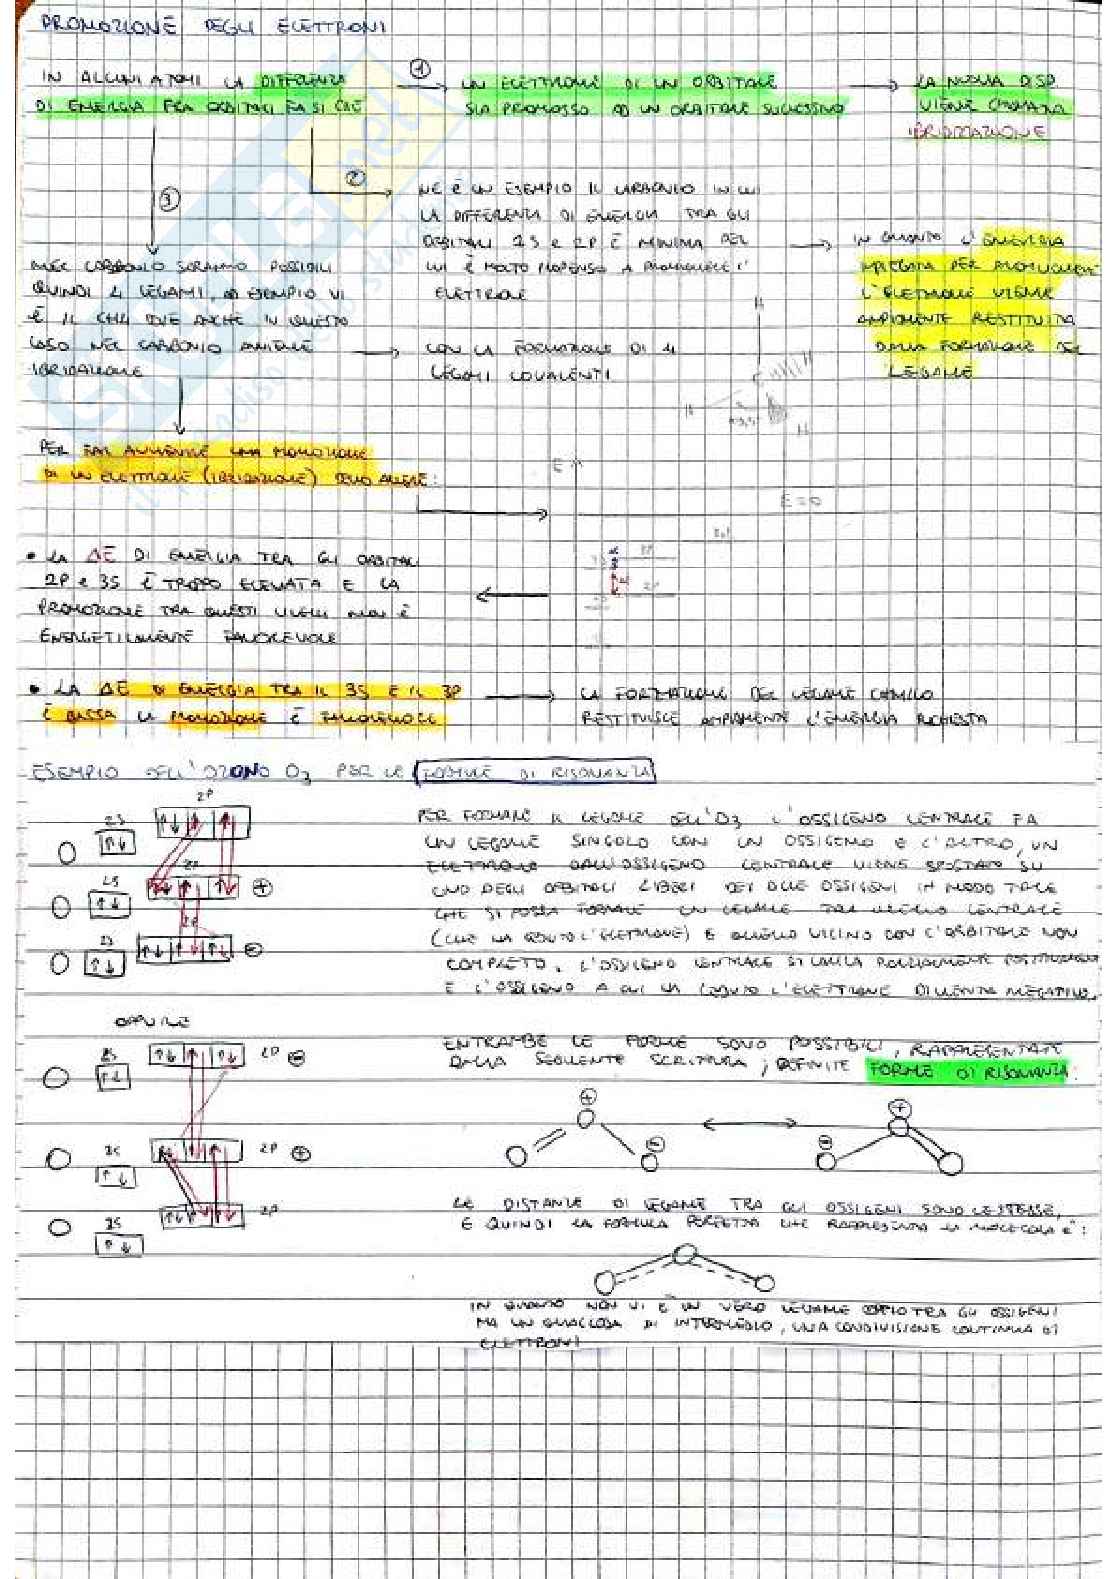 PROMOZIONE DEGLI ELETTRONI
IN ALCUNI ATOMI LA DIFFERENZA
DI ENERGIA FRA ORBITALI FA SI CHE
1
UN ELETTRONE DI UN ORBITALE
SIA PROMOSSO AD UN ORBITALE SUCCESSIVO
LA NUOVA DISP.
VIENE CHIAMATA
IBRIDAZIONE
2
NE È UN ESEMPIO IL CARBONIO IN CUI
LA DIFFERENZA DI ENERGIA TRA GLI
ORBITALI 2S e 2P È MINIMA PER
CUI È MOLTO PROPENSO A PROMUOVERE L'
ELETTRONE
IN QUANTO L'ENERGIA
IMPIEGATA PER PROMUOVERE
L'ELETTRONE VIENE
AMPIAMENTE RESTITUITA
DALLA FORMAZIONE DEL
LEGAME
3
NEL CARBONIO SARANNO POSSIBILI
QUINDI 4 LEGAMI, AD ESEMPIO VI
È IL CH4 DOVE ANCHE IN QUESTO
CASO NEL CARBONIO AVVIENE
IBRIDAZIONE
CON LA FORMAZIONE DI 4
LEGAMI COVALENTI
H
C
H
H
PER FAR AVVENIRE UNA PROMOZIONE
DI UN ELETTRONE (IBRIDAZIONE) DEVO AVERE:
E
E=0
3P
2P
• LA ΔE DI ENERGIA TRA GLI ORBITALI
2P e 3S È TROPPO ELEVATA E LA
PROMOZIONE TRA QUESTI LIVELLI NON È
ENERGETICAMENTE FAVOREVOLE
• LA ΔE DI ENERGIA TRA IL 3S E IL 3P
È BASSA LA PROMOZIONE È FAVOREVOLE
LA FORMAZIONE DEL LEGAME CHIMICO
RESTITUISCE AMPIAMENTE L'ENERGIA RICHIESTA
ESEMPIO DELL'OZONO O3 PER LE FORMULE DI RISONANZA
2S
2P
2S
2P
2S
2P
PER FORMARE IL LEGAME DELL'O3 L'OSSIGENO CENTRALE FA
UN LEGAME SINGOLO CON UN OSSIGENO E L'ALTRO, UN
ELETTRONE DALL'OSSIGENO CENTRALE VIENE SPOSTATO SU
UNO DEGLI ORBITALI LIBERI DEI DUE OSSIGENI IN MODO TALE
CHE SI POSSA FORMARE UN LEGAME TRA QUELLO CENTRALE
(CHE HA CEDUTO L'ELETTRONE) E QUELLO VICINO CON L'ORBITALE NON
COMPLETO. L'OSSIGENO CENTRALE SI CARICA PARZIALMENTE POSITIVAMENTE
E L'OSSIGENO A CUI HA CEDUTO L'ELETTRONE DIVENTA NEGATIVO.
OPPURE
2S
2P
2S
2P
2S
2P
ENTRAMBE LE FORME SONO POSSIBILI, RAPPRESENTATE
DALLA SEGUENTE SCRITTURA, DEFINITE FORME DI RISONANZA:
LE DISTANZE DI LEGAME TRA GLI OSSIGENI SONO LE STESSE,
E QUINDI LA FORMULA PERFETTA CHE RAPPRESENTA LA MOLECOLA È:
IN QUANTO NON VI È UN VERO LEGAME DOPPIO TRA GLI OSSIGENI
MA UN QUALCOSA DI INTERMEDIO, UNA CONDIVISIONE CONTINUA DI
ELETTRONI